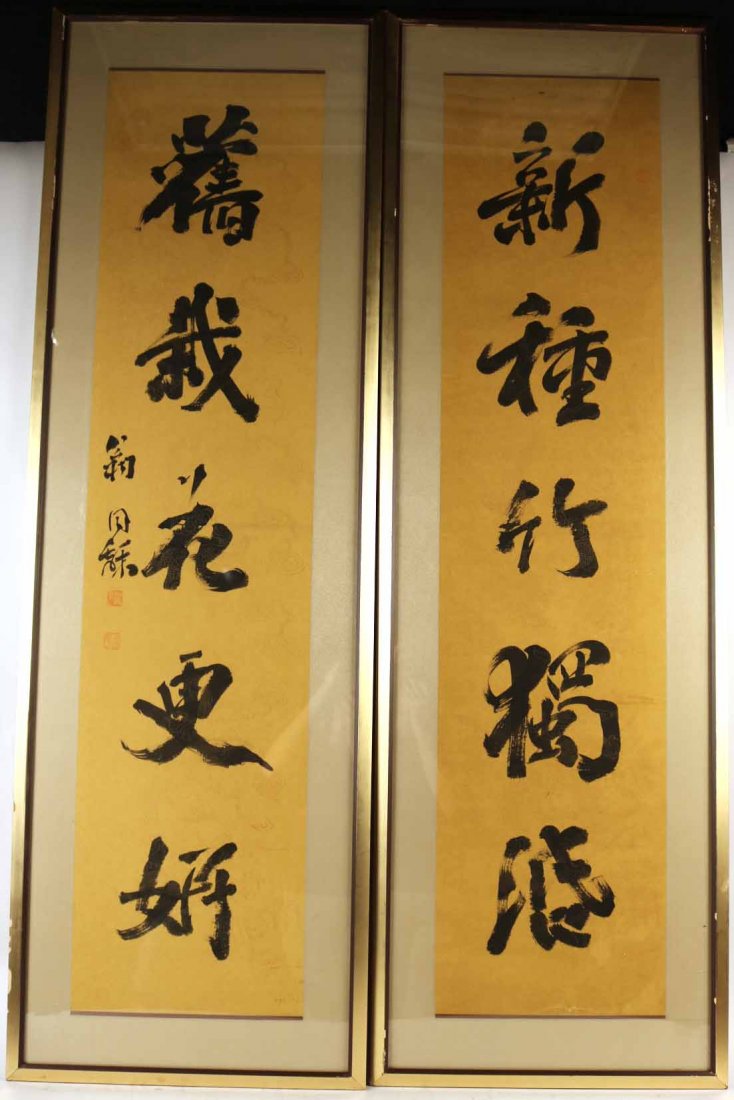 新種竹獨活
舊栽花更妍
翁同龢